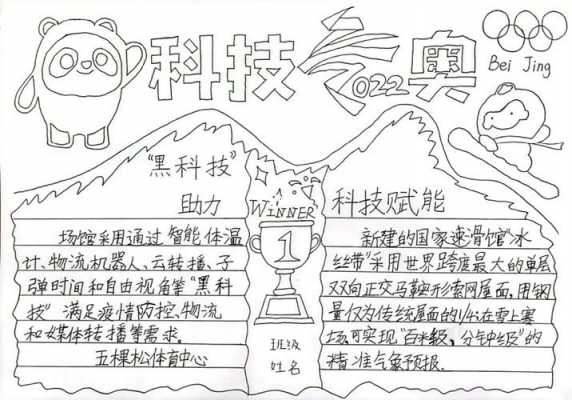 科技冬奥
2022
Bei Jing
"黑科技"
助力
场馆采用通过智能体温
计、物流机器人、云转播、子
弹时间和自由视角等"黑科
技"满足疫情防控、物流
和媒体转播等需求.
五棵松体育中心
WiNNER
1
班级
姓名
科技赋能
新建的国家速滑馆"冰
丝带"采用世界跨度最大的单层
双向正交马鞍形索网屋面,用钢
量仅为传统屋面的1/4;在雪上赛
场,可实现"百米级、分钟级"的
精准气象预报.